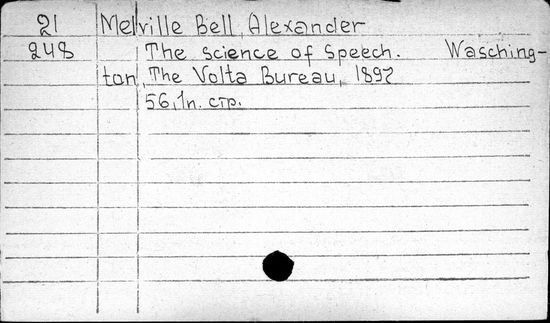 21 Melville Bell, Alexander
248 The science of Speech. Wasching-
ton, The Volta Bureau, 1897
56, 1п. стр.